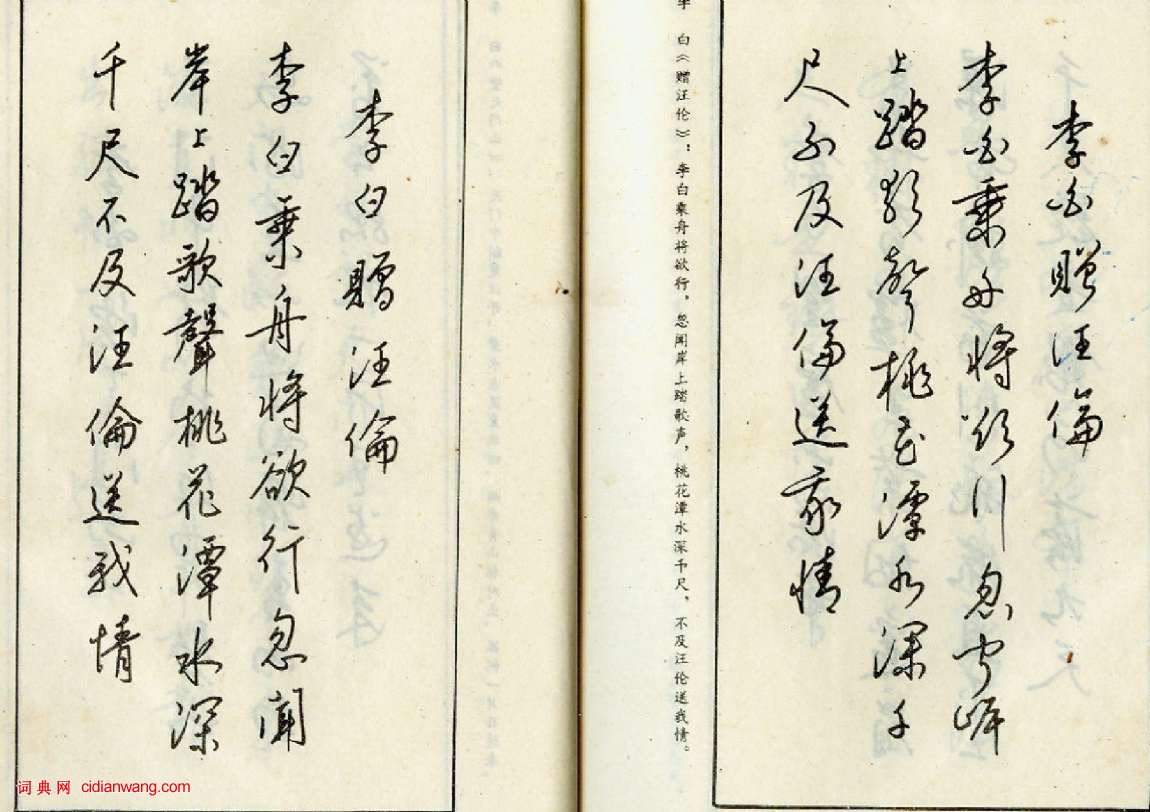 李白贈汪倫
李白乘舟將欲行忽聞岸
上踏歌聲桃花潭水深千
尺不及汪倫送我情
李 白《赠汪伦》:李白乘舟将欲行,忽闻岸上踏歌声,桃花潭水深千尺,不及汪伦送我情。
李白贈汪倫
李白乘舟將欲行忽聞
岸上踏歌聲桃花潭水深
千尺不及汪倫送我情
词典网 cidianwang.com